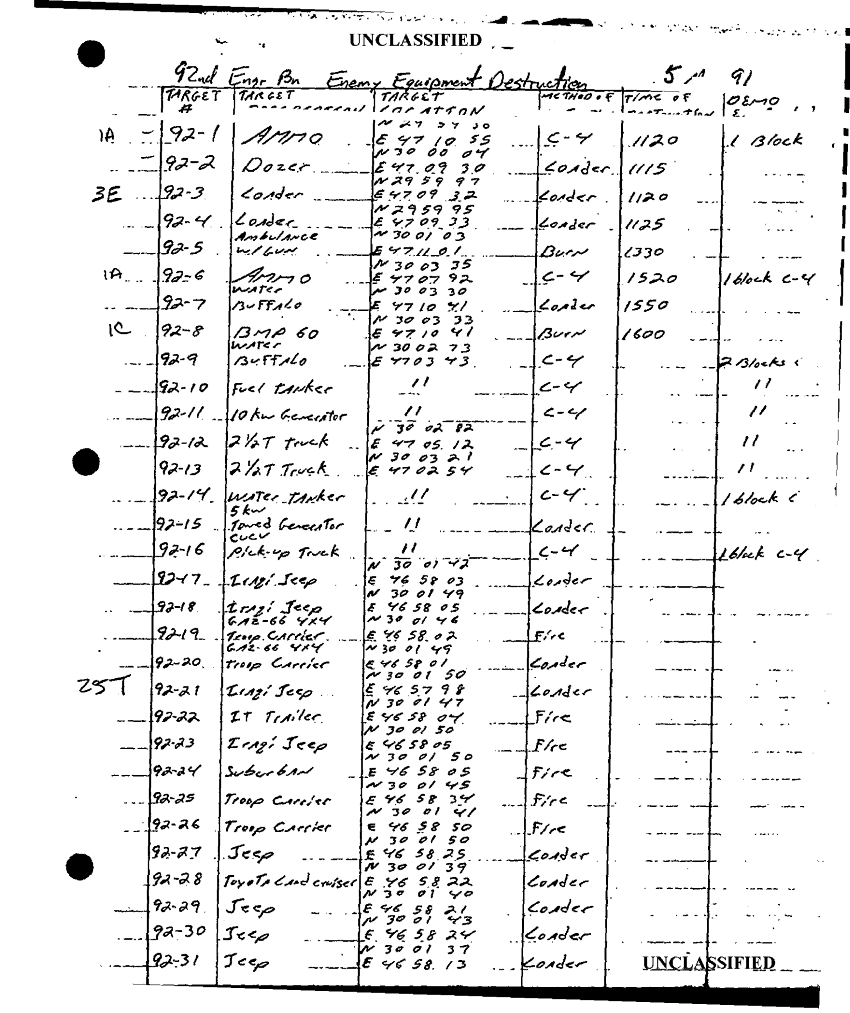 UNCLASSIFIED
92nd Engr Bn Enemy Equipment Destruction 5 91
TARGET # TARGET TARGET LOCATION METHOD OF TIME OF DEMO
1A 92-1 AMMO E 47 10 55 C-4 1120 1 Block
N 30 00 04
92-2 Dozer E 47 09 30 Loader 1115
N 29 59 97
3E 92-3 Loader E 47 09 32 Loader 1120
N 29 59 95
92-4 Loader E 47 09 33 Loader 1125
Ambulance N 30 01 03
92-5 W/GUN E 47 11 01 Burn 1330
N 30 03 35
1A 92-6 AMMO E 47 07 92 C-4 1520 1 block C-4
WATER N 30 03 30
92-7 BUFFALO E 47 10 41 Loader 1550
N 30 03 33
1C 92-8 BMP 60 E 47 10 41 Burn 1600
WATER N 30 02 73
92-9 BUFFALO E 47 03 43 C-4 2 Blocks
92-10 Fuel TANKer 11 C-4 11
92-11 10 kw Generator 11 C-4 11
N 30 02 82
92-12 2½T Truck E 47 05 12 C-4 11
N 30 03 21
92-13 2½T Truck E 47 02 54 C-4 11
92-14 WATER TANKer 11 C-4 1 block
5 kw
92-15 Towed Generator 11 Loader
CUCV
92-16 Pick-up Truck 11 C-4 1 block C-4
N 30 01 42
92-17 Iraqi Jeep E 46 58 03 Loader
N 30 01 49
92-18 Iraqi Jeep E 46 58 05 Loader
GAZ-66 4X4 N 30 01 46
92-19 Troop Carrier E 46 58 02 Fire
GAZ-66 4X4 N 30 01 49
92-20 Troop Carrier E 46 58 01 Loader
N 30 01 50
25T 92-21 Iraqi Jeep E 46 57 98 Loader
N 30 01 47
92-22 1T Trailer E 46 58 04 Fire
N 30 01 50
92-23 Iraqi Jeep E 46 58 05 Fire
N 30 01 50
92-24 SuburbAN E 46 58 05 Fire
N 30 01 45
92-25 Troop Carrier E 46 58 34 Fire
N 30 01 41
92-26 Troop Carrier E 46 58 50 Fire
N 30 01 50
92-27 Jeep E 46 58 25 Loader
N 30 01 39
92-28 Toyota Landcruiser E 46 58 22 Loader
N 30 01 40
92-29 Jeep E 46 58 21 Loader
N 30 01 43
92-30 Jeep E 46 58 24 Loader
N 30 01 37
92-31 Jeep E 46 58 13 Loader
UNCLASSIFIED